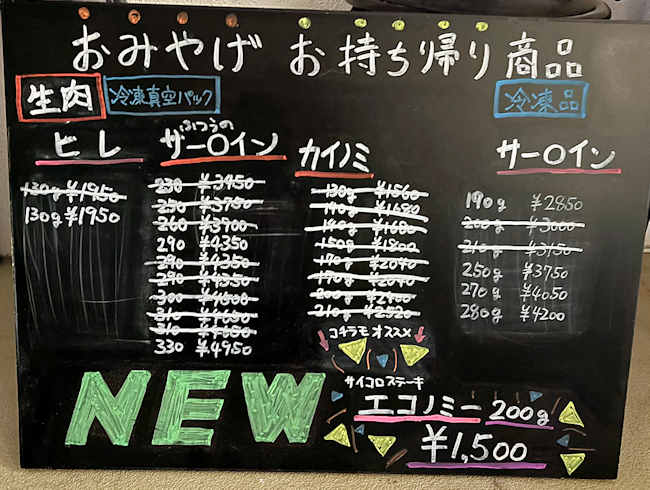 おみやげ お持ち帰り商品
生肉 冷凍真空パック
冷凍品
ヒレ
130g ¥1950
130g ¥1950
ふつうの
サーロイン
230 ¥3450
250 ¥3750
260 ¥3900
290 ¥4350
290 ¥4350
290 ¥4350
300 ¥4500
310 ¥4650
310 ¥4650
330 ¥4950
カイノミ
130g ¥1560
140g ¥1680
140g ¥1680
150g ¥1800
170g ¥2040
170g ¥2040
200g ¥2400
210g ¥2520
サーロイン
190g ¥2850
200g ¥3000
210g ¥3150
250g ¥3750
270g ¥4050
280g ¥4200
コチラモオススメ
サイコロステーキ
NEW
エコノミー 200g
¥1,500